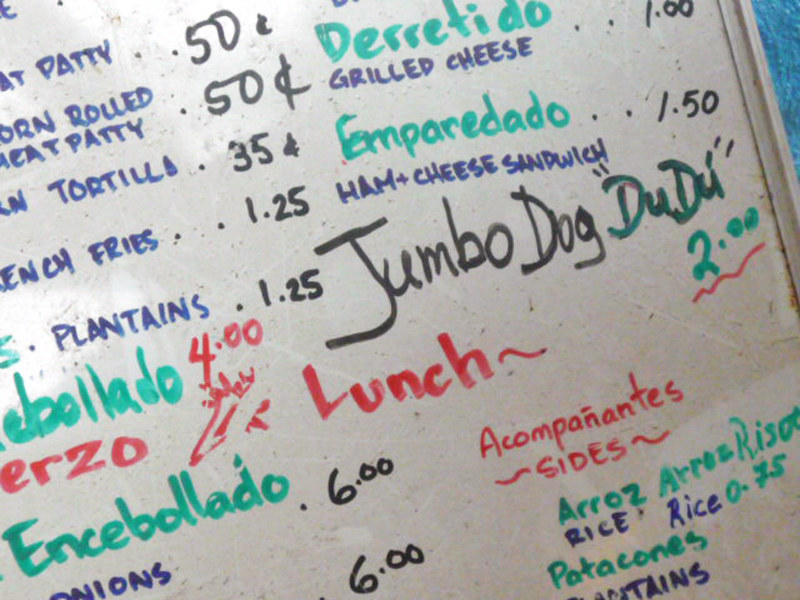 AT PATTY . .50 ¢
ORN ROLLED . 50 ¢
MEAT PATTY
N TORTILLA . 35 ¢
ENCH FRIES . . 1.25
S . PLANTAINS . 1.25
ebollado 4.00
erzo / Lunch~
Encebollado . 6.00
ONIONS 6.00
Derretido . . 1.00
GRILLED CHEESE
Emparedado . . 1.50
HAM + CHEESE SANDWICH
Jumbo Dog "DuDú"
2.00
Acompañantes
~SIDES~
Arroz Arroz Risot
RICE Rice 0.75
Patacones
PLANTAINS